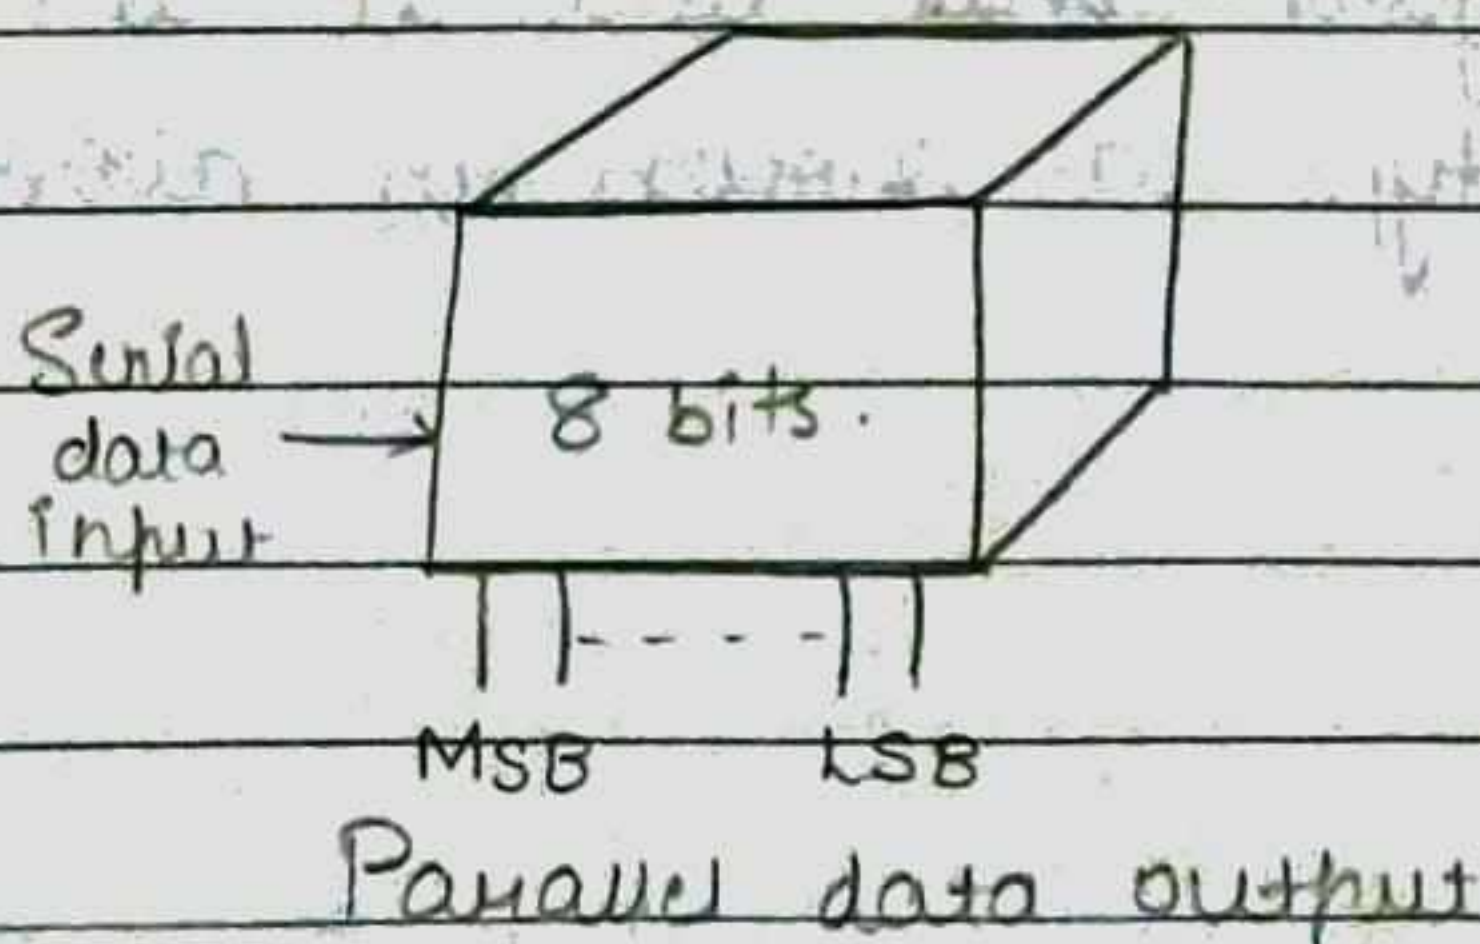 Serial
data
input
8 bits.
MSB LSB
Parallel data output